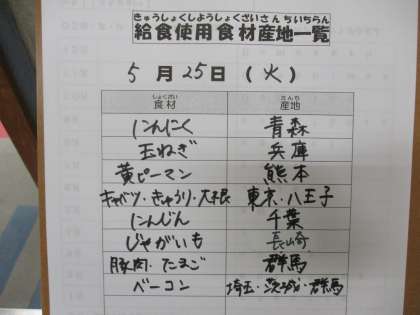 きゅうしょくしようしょくざいさんちいちらん
給食使用食材産地一覧
5月25日(火)
しょくざい さんち
食材 産地
にんにく 青森
玉ねぎ 兵庫
黄ピーマン 熊本
キャベツ・きゅうり・大根 東京・八王子
にんじん 千葉
じゃがいも 長崎
豚肉・たまご 群馬
ベーコン 埼玉・茨城・群馬